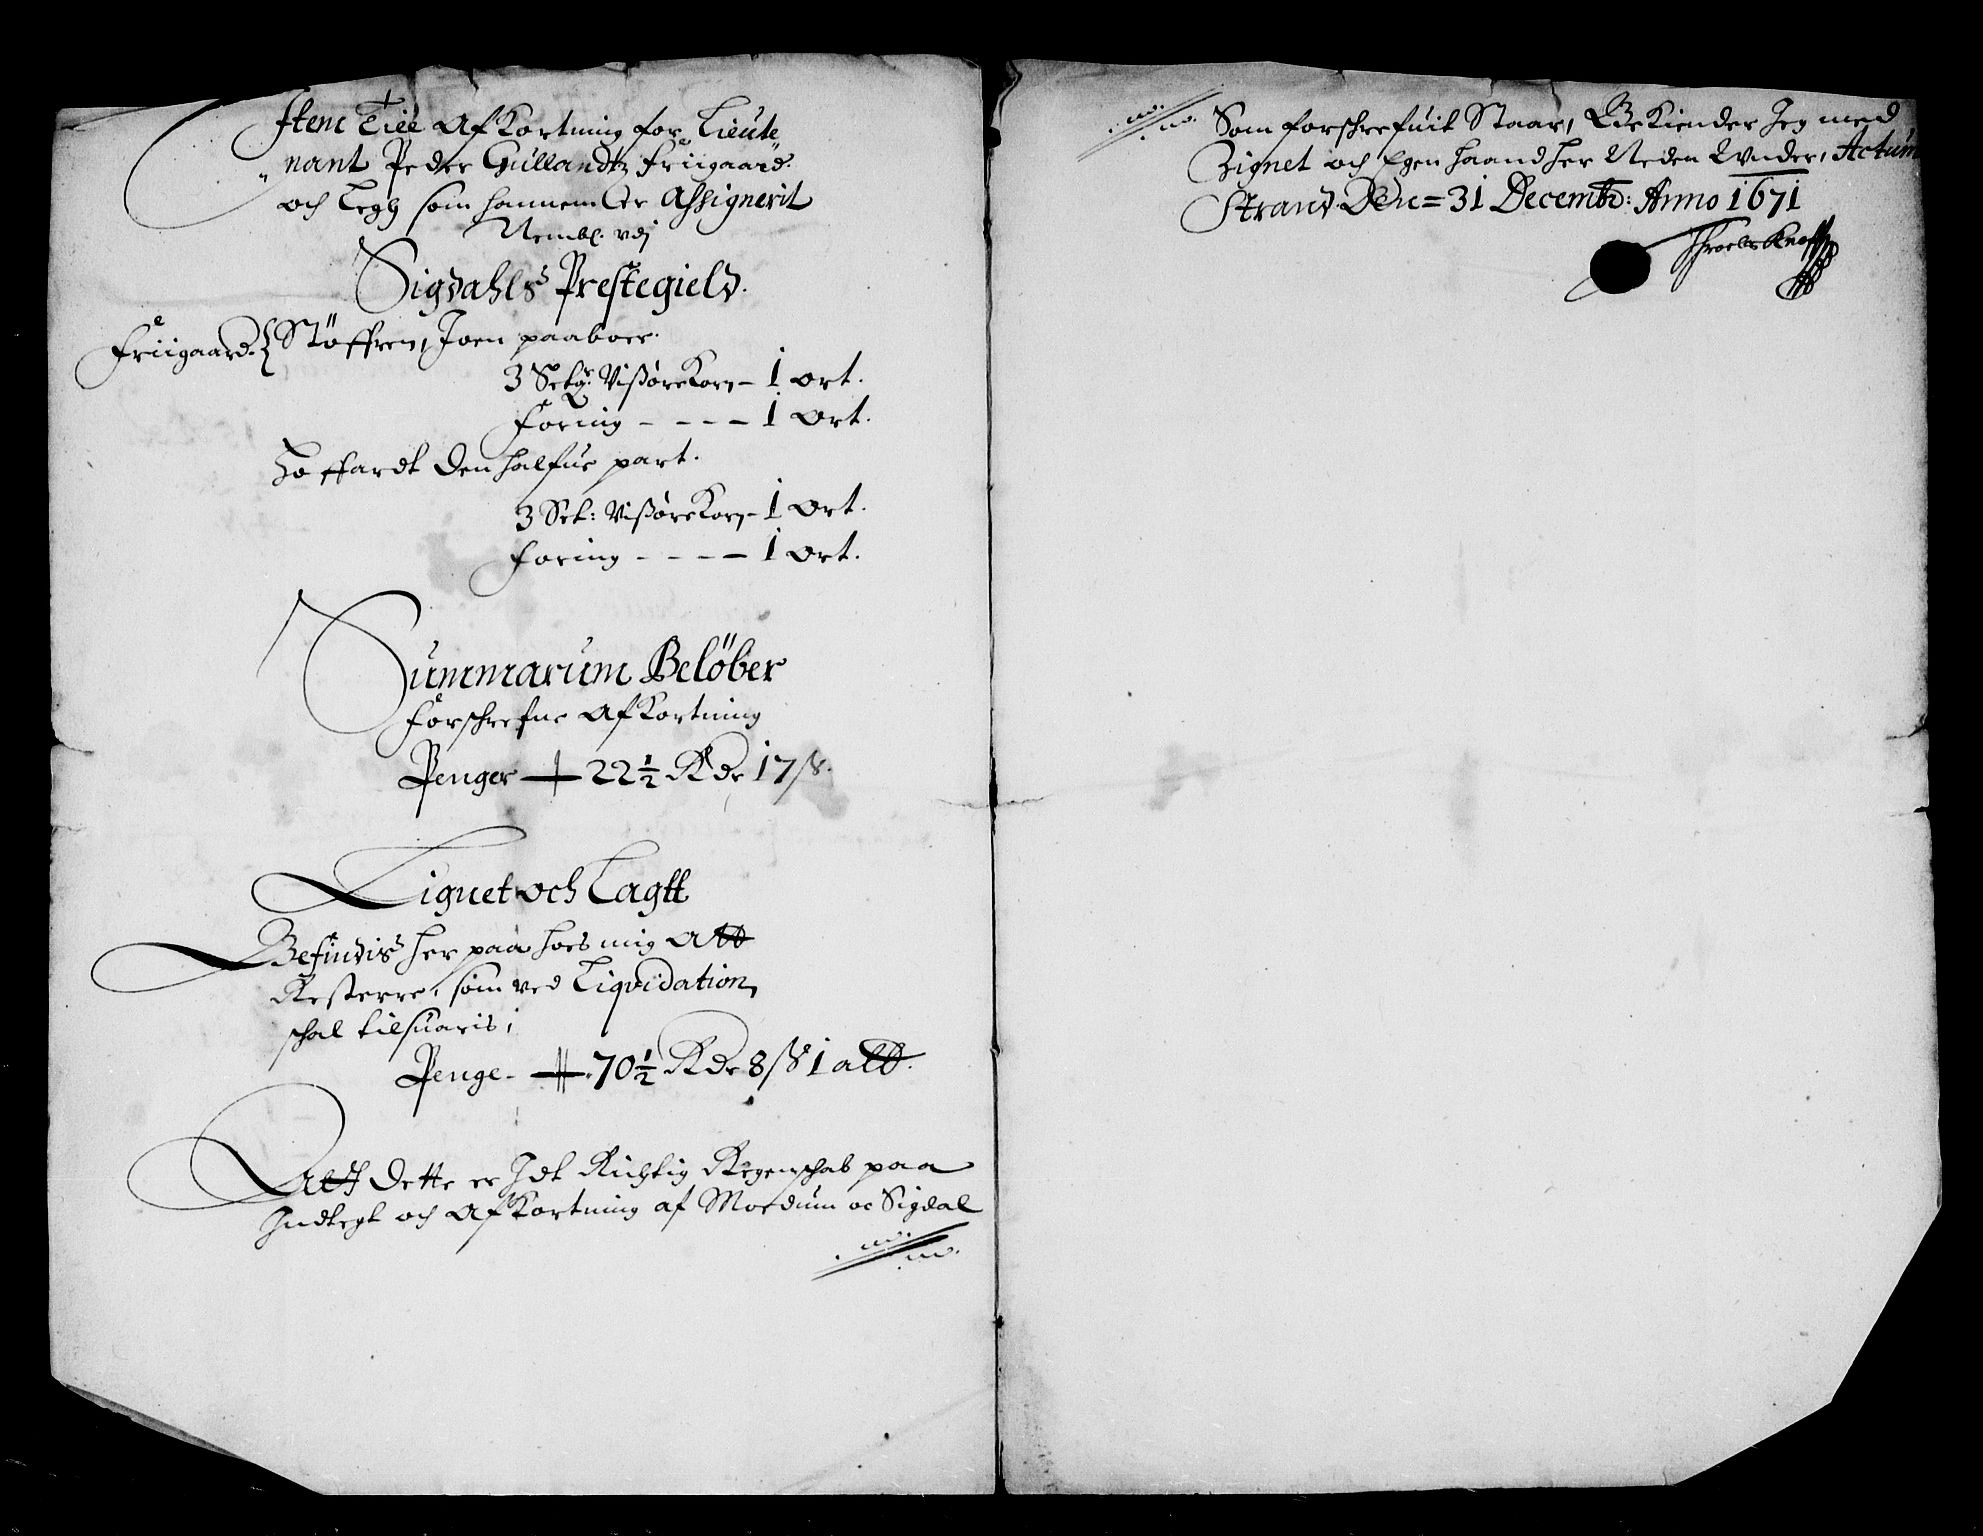 stene Till Afkortning for Lieute
nant Peder Gullandtz friigaard
och Legh som hannem er Assignerit
Nembl. vdj
Sigdahls Prestegield.
Friigaard. Støffren, Joen paaboer.
3 Setg: Vißøre Korn – 1 ort.
Foring - - - – 1 ort.
Hoffardt den halfue part.
3 Set: Vißøre Korn – 1 ort.
foring - - - – 1 ort.
Summarum Beløber
Forschrefne Afkortning
Penger — 22½ Rdr 17 ß.
Lignet och Lagtt
Befindis her paa hoes mig Att
Resterre, som ved Liqvidation
schal tilsuaris,
Penge - — 70½ Rdr 8 ß 1 alb.
Att dette er Idt Richtig Regenschab paa
Indtegt och Afkortning af Modum oc Sigdal
Som forschrefuit Staar, Bekiender Jeg med
Zignet och Egen haand her Neden Vnder, Actum
Strand Den = 31 Decembr: Anno 1671
Throels Knoff